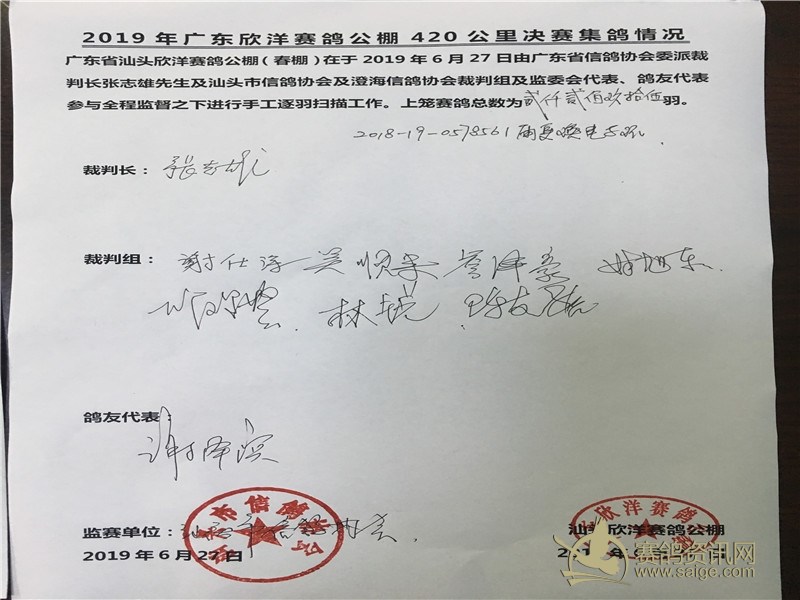 2019年广东欣洋赛鸽公棚420公里决赛集鸽情况
广东省汕头欣洋赛鸽公棚(春棚)在于2019年6月27日由广东省信鸽协会委派裁
判长张志雄先生及汕头市信鸽协会及澄海信鸽协会裁判组及监委会代表、鸽友代表
参与全程监督之下进行手工逐羽扫描工作。上笼赛鸽总数为贰仟贰佰玖拾伍羽。
2018-19-0578561
裁判长：张志雄
裁判组：谢仕 吴
林 陈友
鸽友代表：
谢泽滨
监赛单位：汕头市信鸽协会 汕头欣洋赛鸽公棚
2019年6月27日
赛鸽资讯网
www.saige.com